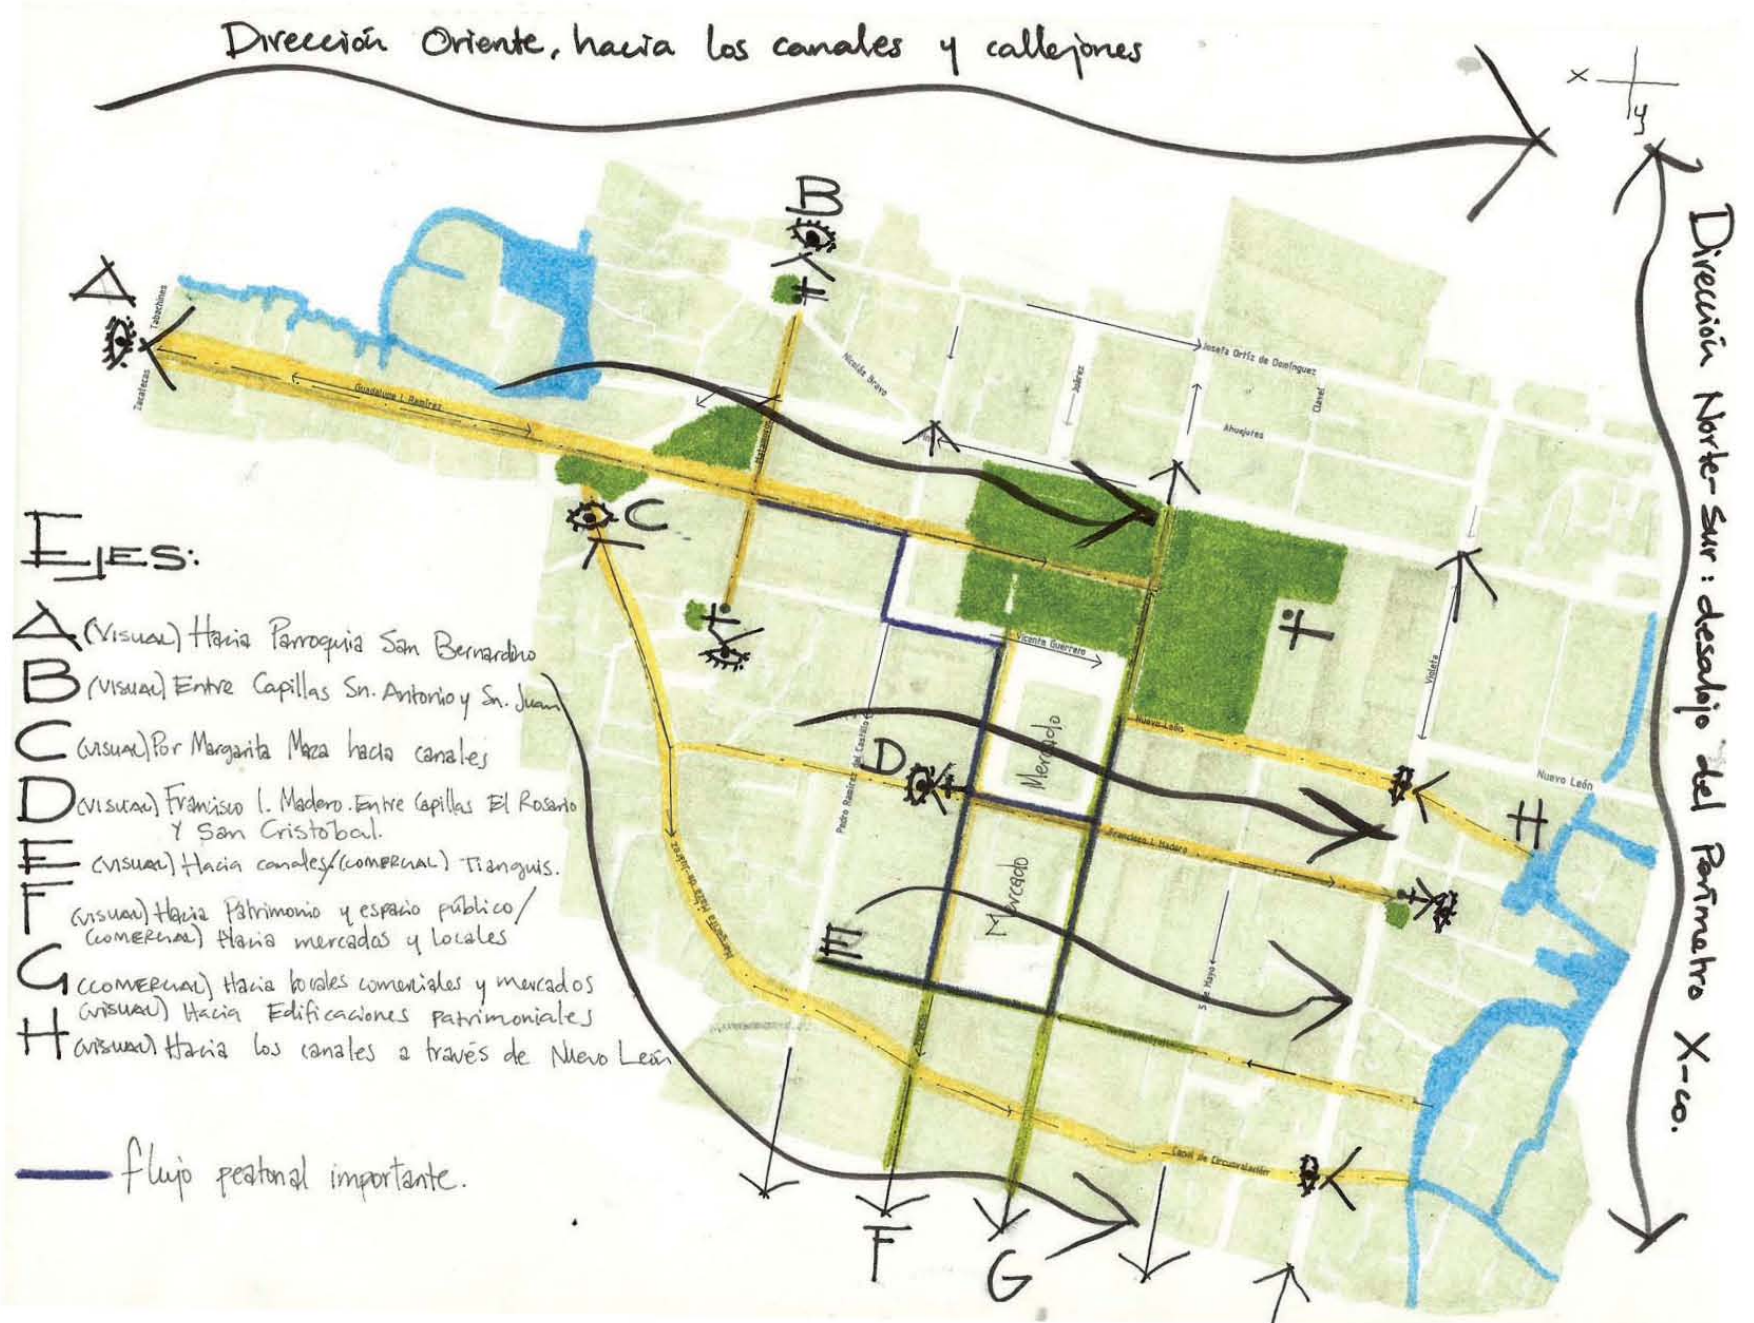 Dirección Oriente, hacia los canales y callejones
x
y
Dirección Norte-Sur: desalojo del Perímetro X-co.
B
A
Tabachines
Zacatecas
Guadalupe I. Ramírez
Nicolás Bravo
Juárez
Josefa Ortíz de Domínguez
Clavel
Ahuejotes
Matamoros
C
Vicente Guerrero
Violeta
Nuevo León
Nuevo León
Mercado
D
Pedro Ramírez del Castillo
H
Francisco I. Madero
Margarita Maza de Juárez
Mercado
E
5 de Mayo
Canal de Circunvalación
F
G
Ejes:
A (VISUAL) Hacia Parroquia San Bernardino
B (VISUAL) Entre Capillas Sn. Antonio y Sn. Juan
C (VISUAL) Por Margarita Maza hacia canales
D (VISUAL) Francisco I. Madero. Entre Capillas El Rosario
Y San Cristóbal.
E (VISUAL) Hacia canales/(COMERCIAL) Tianguis.
F (VISUAL) Hacia Patrimonio y espacio público/
(COMERCIAL) Hacia mercados y locales
G (COMERCIAL) Hacia locales comerciales y mercados
(VISUAL) Hacia Edificaciones patrimoniales
H (VISUAL) Hacia los canales a través de Nuevo León
flujo peatonal importante.